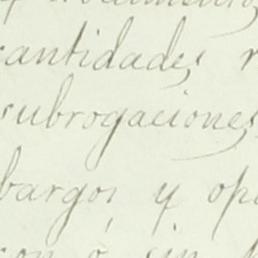 cantidades
subrogaciones
bargos y op
con ó sin